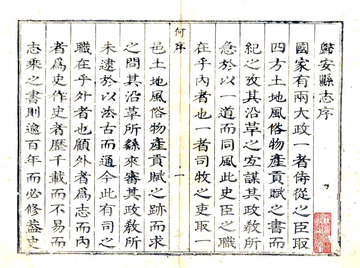 安縣志序
國家有兩大政一者侍從之臣取
四方土地風俗物產貢賦之書而
紀之攷其沿革之宜謀其政教所
急於以一道而同風此史臣之職
在乎內者也一者司牧之吏取一
何序
一
邑土地風俗物產貢賦之跡而求
之問其沿革所繇來審其政教所
未逮於以法古而通今此有司之
職在乎外者也顧外者為志而內
者為史作史者歷千載而不易而
志乘之書則逾百年而必修蓋史